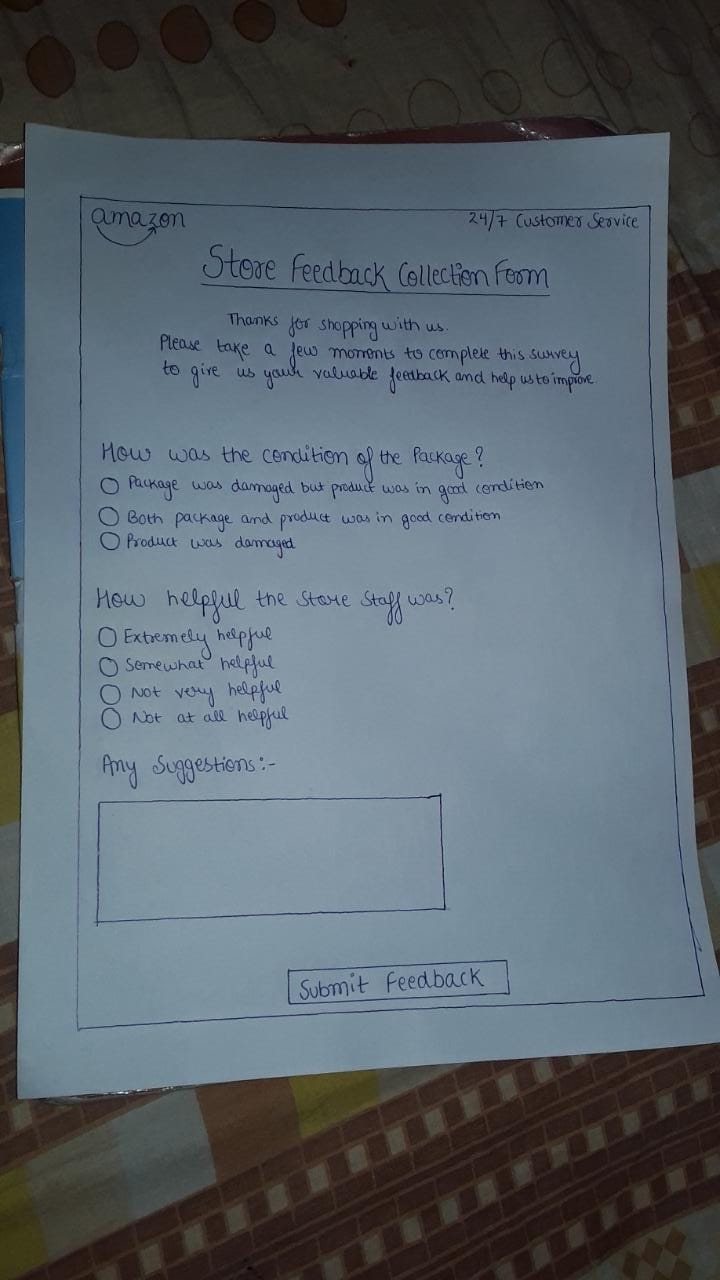 amazon
24/7 Customer Service
Store Feedback Collection Form
Thanks for shopping with us.
Please take a few moments to complete this survey
to give us your valuable feedback and help us to improve.
How was the condition of the Package?
Package was damaged but product was in good condition
Both package and product was in good condition
Product was damaged
How helpful the Store Staff was?
Extremely helpful
Somewhat helpful
Not very helpful
Not at all helpful
Any Suggestions:-
Submit Feedback